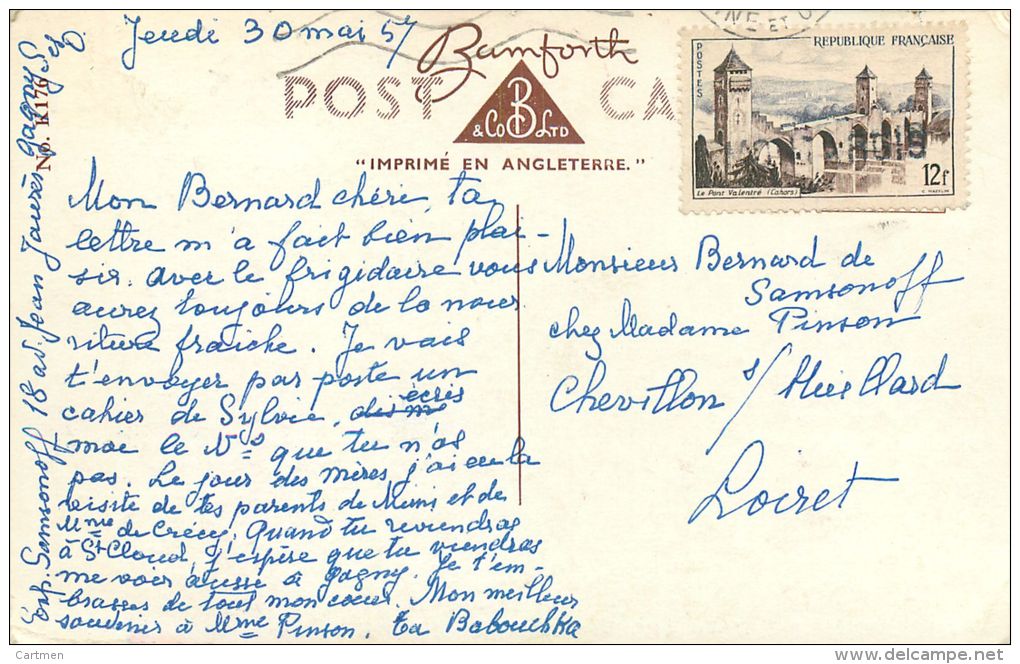 Jeudi 30 mai 57
Bamforth
POST CA
B
& Co LTD
"IMPRIMÉ EN ANGLETERRE."
No. K176
POSTES
REPUBLIQUE FRANÇAISE
Le Pont Valentré (Cahors)
12f
Mon Bernard chéri, ta
lettre m'a fait bien plai-
sir. avec le frigidaire vous
aurez toujours de la nour
riture fraiche. Je vais
t'envoyer par poste un
cahier de Sylvie, écris
moi le Nos que tu n'as
pas. Le jour des mères j'ai eu la
visite de tes parents de Muni et de
Mme de Crécy. Quand tu reviendras
à St Cloud, j'espère que tu viendras
me voir aussi à Gagny. Je t'em-
brasse de tout mon coeur. Mon meilleur
souvenir à Mme Pinson. Ta Babouchka
Monsieur Bernard de
Samsonoff
chez Madame Pinson
Chevillon s/ Huillard
Loiret
Exp. Samsonoff 18 av. Jean Jaurès Gagny S et O.
Cartmen
delcampe.net